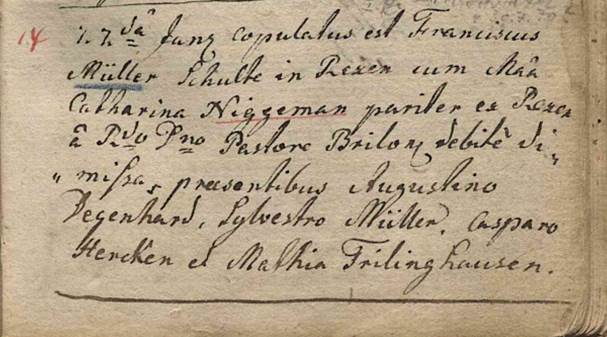 14 22dâ Junÿ copulatus est Franciscus
Müller Schulte in Rexen cum Mâa
Catharina Niggeman pariter ex Rexen
â Rdo Dno Pastore Brilonÿ debitè di„
„missa, præsentibus Augustino
Degenhard, Sylvestro Müller. Casparo
Hercken et Mathia Frilinghausen.